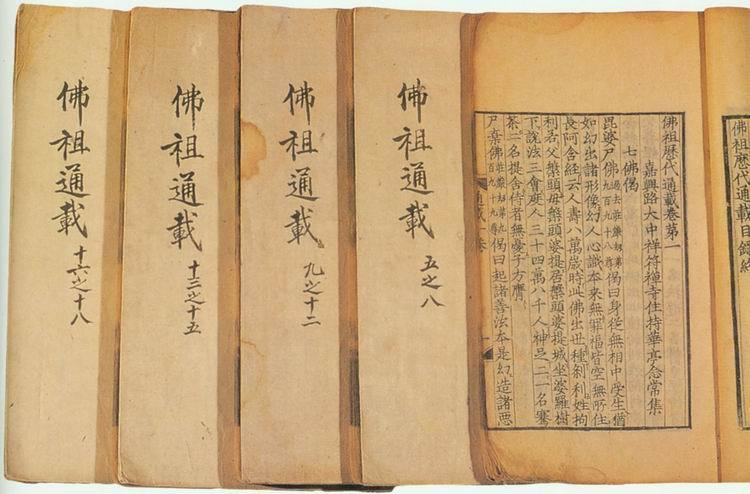 佛祖歷代通載目録終
佛祖歷代通載卷第一
嘉興路大中祥符禪寺住持華亭念常集
七佛偈
毘婆尸佛過去莊嚴劫第九百九十八尊偈曰身從無相中受生猶
如幻出諸形像幻人心識本來無罪福皆空無所住
長阿含經云人壽八萬歲時此佛出世種剎利姓拘
利若父槃頭母槃頭婆提居槃頭婆提城坐婆羅樹
下說法三會度人三十四萬八千人神足二一名騫
茶二名提舍侍者無憂子方膺
尸棄佛莊嚴劫第九百九十九尊偈曰起諸善法本是幻造諸惡
佛祖通載 五之八
佛祖通載 九之十二
佛祖通載 十三之十五
佛祖通載 十六之十八